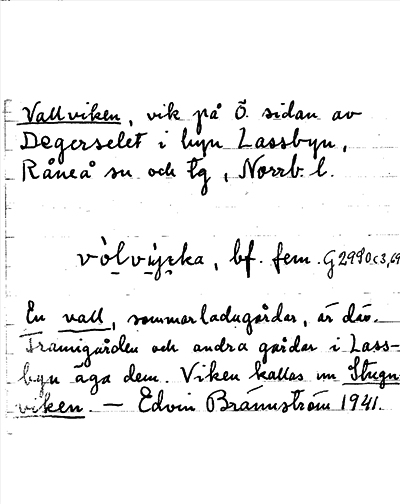 Vallviken, vik på Ö. sidan av
Degerselet i byn Lassbyn,
Råneå sn och tg, Norrb. l.
bf. fem.
En vall, sommarladugårdar, är där.
Framigården och andra gårdar i Lass-
byn äga dem. Viken kallas nu Stugu-
viken. — Edvin Brännström 1941.